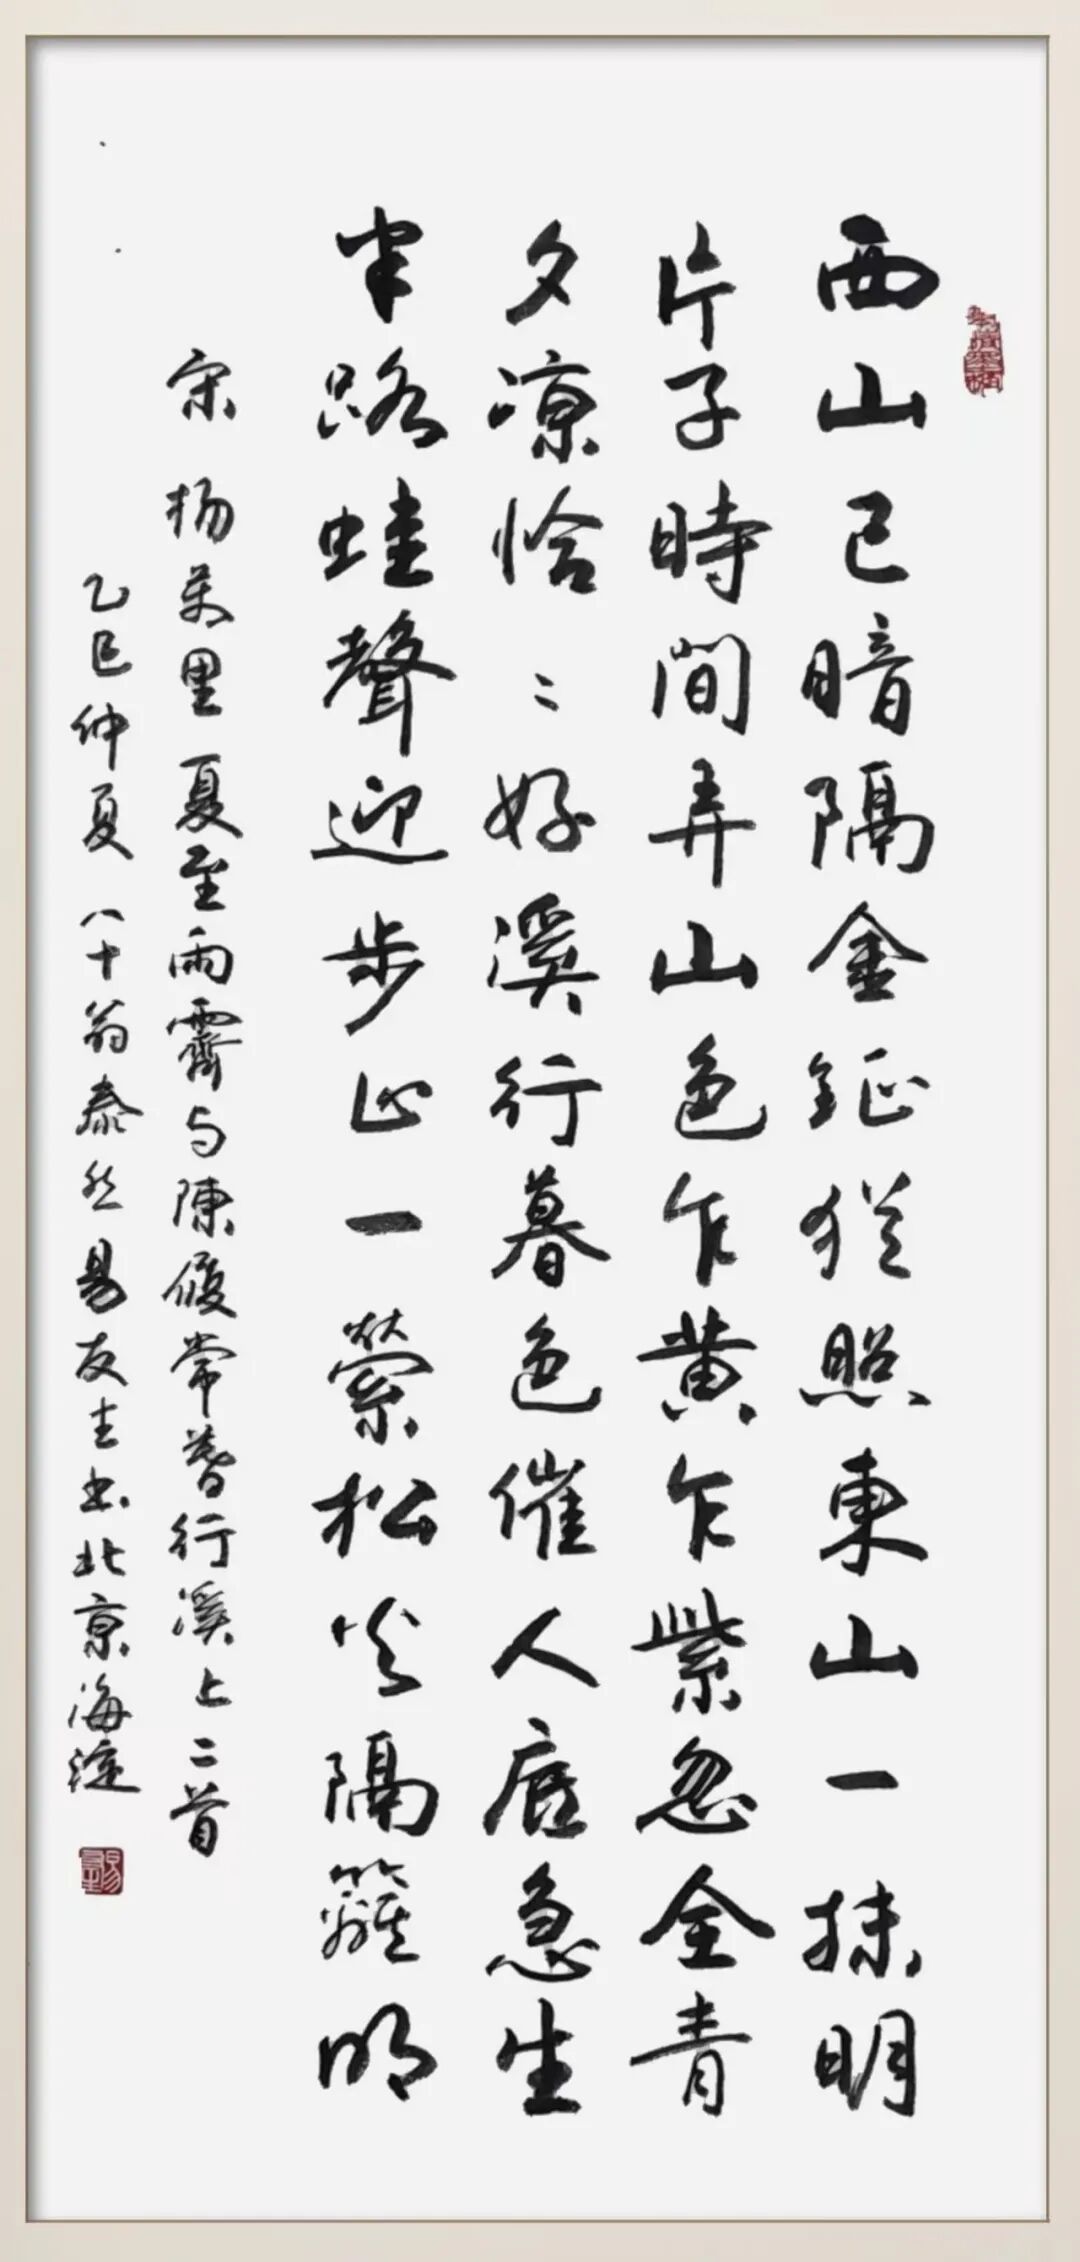 西山已暗隔金鉦猶照東山一抹明
片子時間弄山色乍黃乍紫忽全青
夕凉恰〻好溪行暮色催人底急生
半路蛙聲迎步止一縈松火隔籬明
宋 楊萬里夏至雨霽与陳履常暮行溪上二首
乙巳仲夏 八十翁泰然易友圭书北京海淀